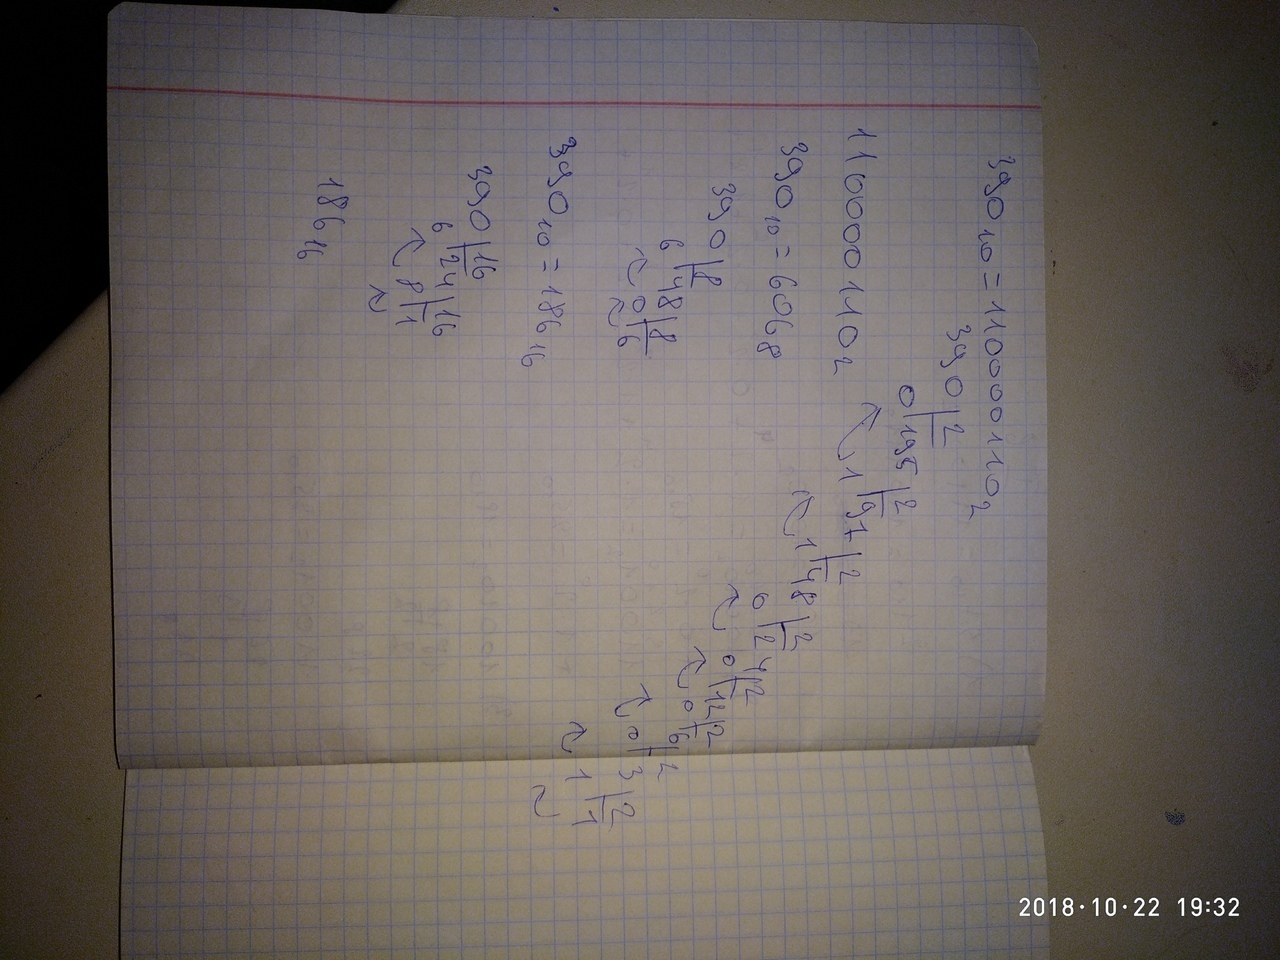 390₁₀ = 110000110₂
390|2
0 195|2
1 97|2
1 48|2
0 24|2
0 12|2
0 6|2
0 3|2
1 1
110000110₂
390₁₀ = 606₈
390|8
6 48|8
0 6
390₁₀ = 186₁₆
390|16
6 24|16
8 1
186₁₆
2018·10·22 19:32